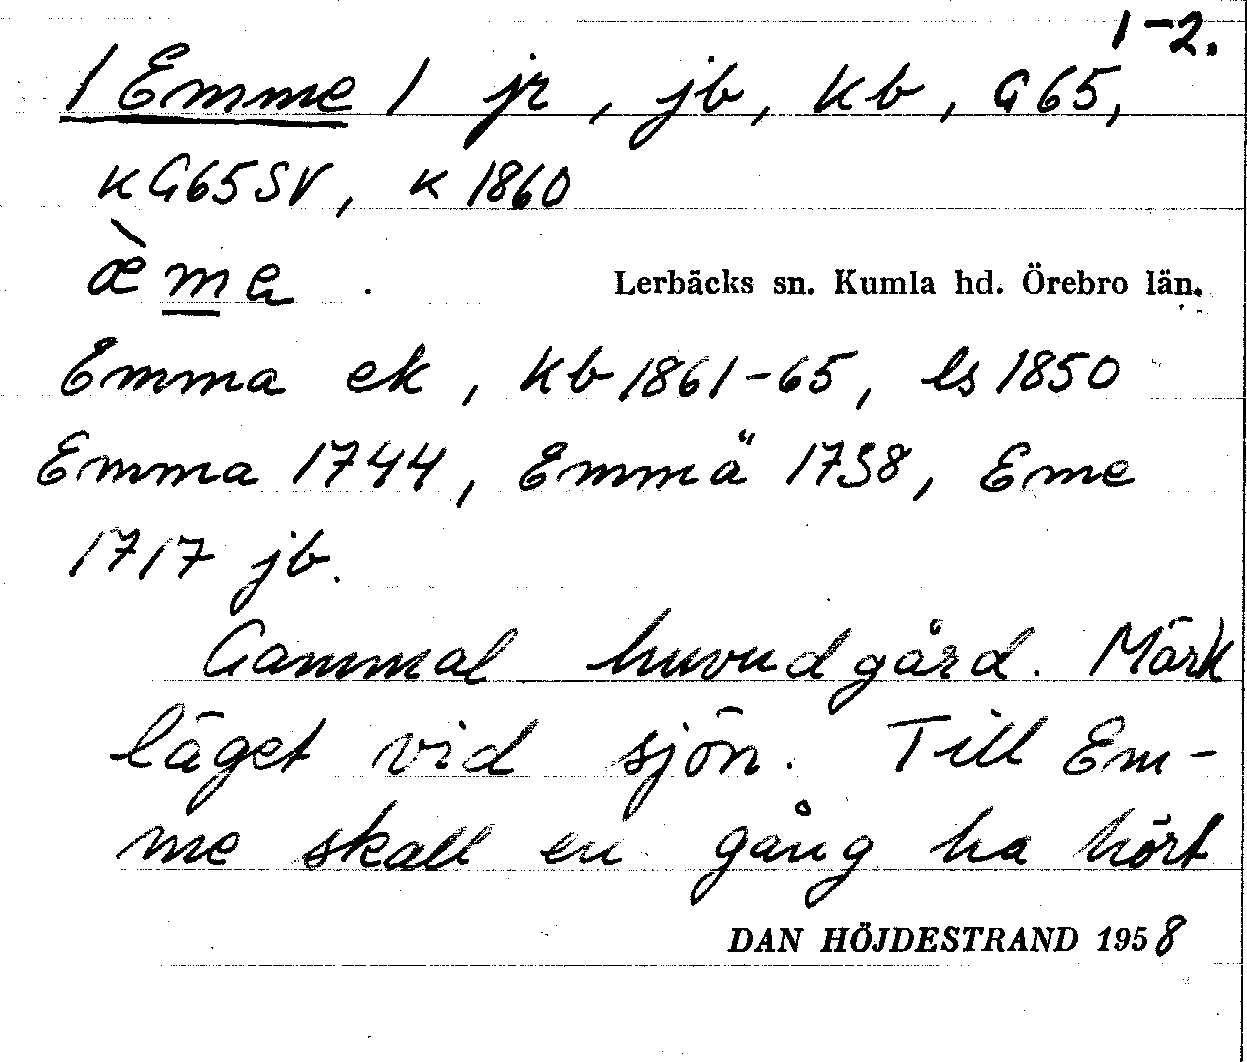 1-2.
/Emme/ jr, jb, kb, G65,
K G65SV, K 1860
æ̀ma . Lerbäcks sn. Kumla hd. Örebro län.
Emma ek, kb 1861-65, ls 1850
Emma 1744, Emmä 1738, Eme
1717 jb.
Gammal huvudgård. Märk
läget vid sjön. Till Em-
me skall en gång ha hört
DAN HÖJDESTRAND 1958